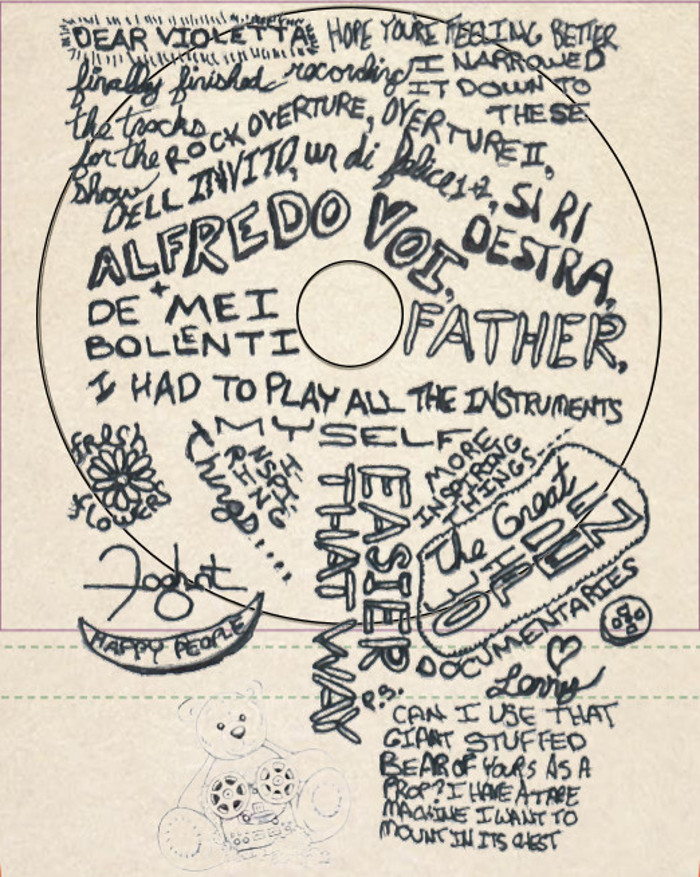 DEAR VIOLETTA HOPE YOU'RE FEELING BETTER
finally finished recording I NARROWED
IT DOWN TO
the tracks THESE
for the ROCK OVERTURE, OVERTURE II,
show DELL INVITO, un di felice 1+2, SI RI
DESTRA,
ALFREDO VOI,
DE + MEI
BOLLENTI FATHER,
I HAD TO PLAY ALL THE INSTRUMENTS
MYSELF
EASIER
THAT WAY
FRESH
FLOWERS
INSPI-
RING
Things....
MORE
INSPIRING
THINGS---
The Great
WIDE
OPEN
HAPPY PEOPLE
DOCUMENTARIES
Lenny
P.S.
CAN I USE THAT
GIANT STUFFED
BEAR OF YOURS AS A
PROP? I HAVE A TAPE
MACHINE I WANT TO
MOUNT IN ITS CHEST